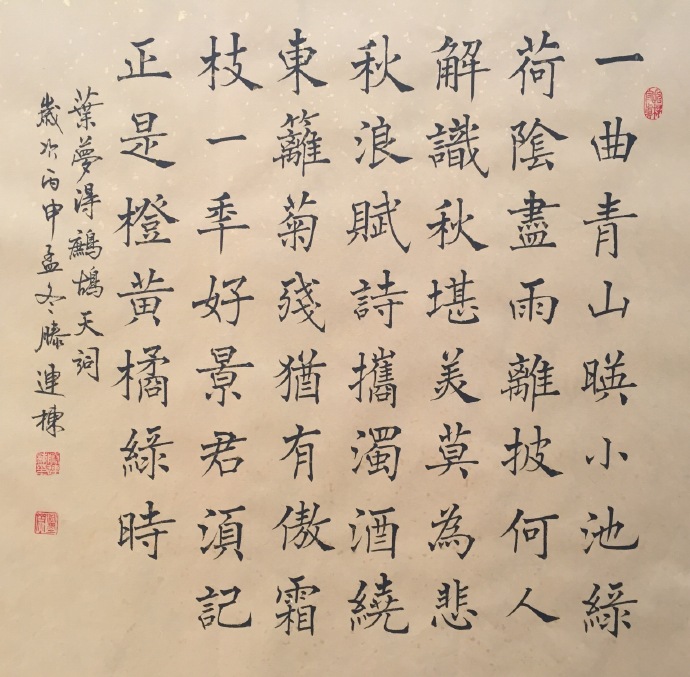 一曲青山暎小池綠
荷陰盡雨離披何人
解識秋堪美莫為悲
秋浪賦詩攜濁酒繞
東籬菊殘猶有傲霜
枝一年好景君須記
正是橙黃橘綠時
葉夢得鷓鴣天詞
歲次丙申孟冬滕連棟